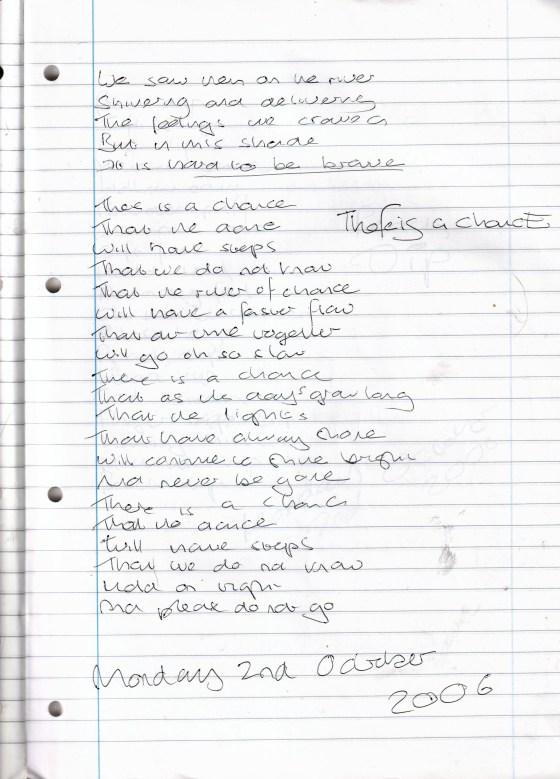 We saw them on the river
Shivering and delivering
The feelings we craved
But in this shade
It is hard to be brave
There is a chance
That the dance
There is a chancE
Will have steps
That we do not know
That the river of chance
Will have a faster flow
That our time together
Will go oh so slow
There is a chance
That as the days grow long
That the lights
That have always shone
Will continue to shine bright
And never be gone
There is a chance
That the dance
Will have steps
That we do not know
Hold on tight
And please do not go
Monday 2nd October
2006